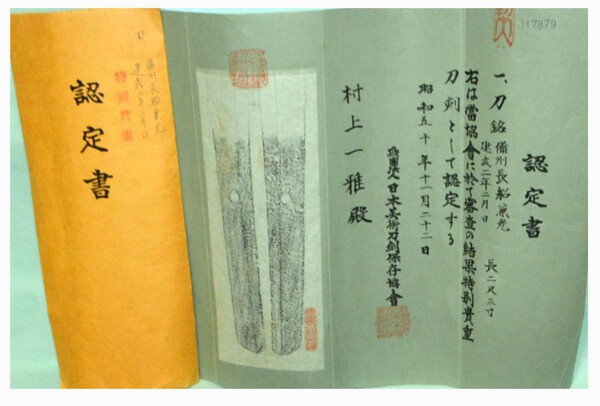 認定書
一、刀 銘 備州長船兼光
建武二年二月日
長二尺三寸
右は當協會に於て審査の結果特別貴重
刀剣として認定する
昭和五十年十一月二十二日
財團法人日本美術刀剣保存協會
村上一雅殿
317879
刀
備州長船兼光
特別貴重
認定書